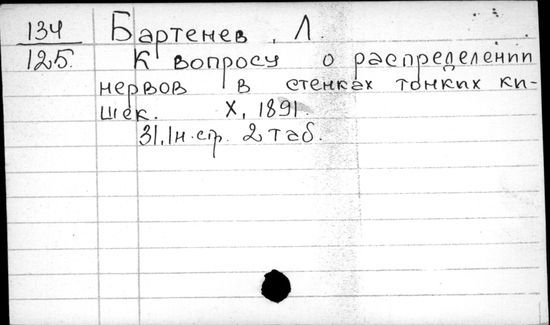 134 Бартенев, Л.
125. К вопросу о распределении
нервов в стенках тонких ки-
шек. X, 1891.
31, 1н. стр. 2 таб.